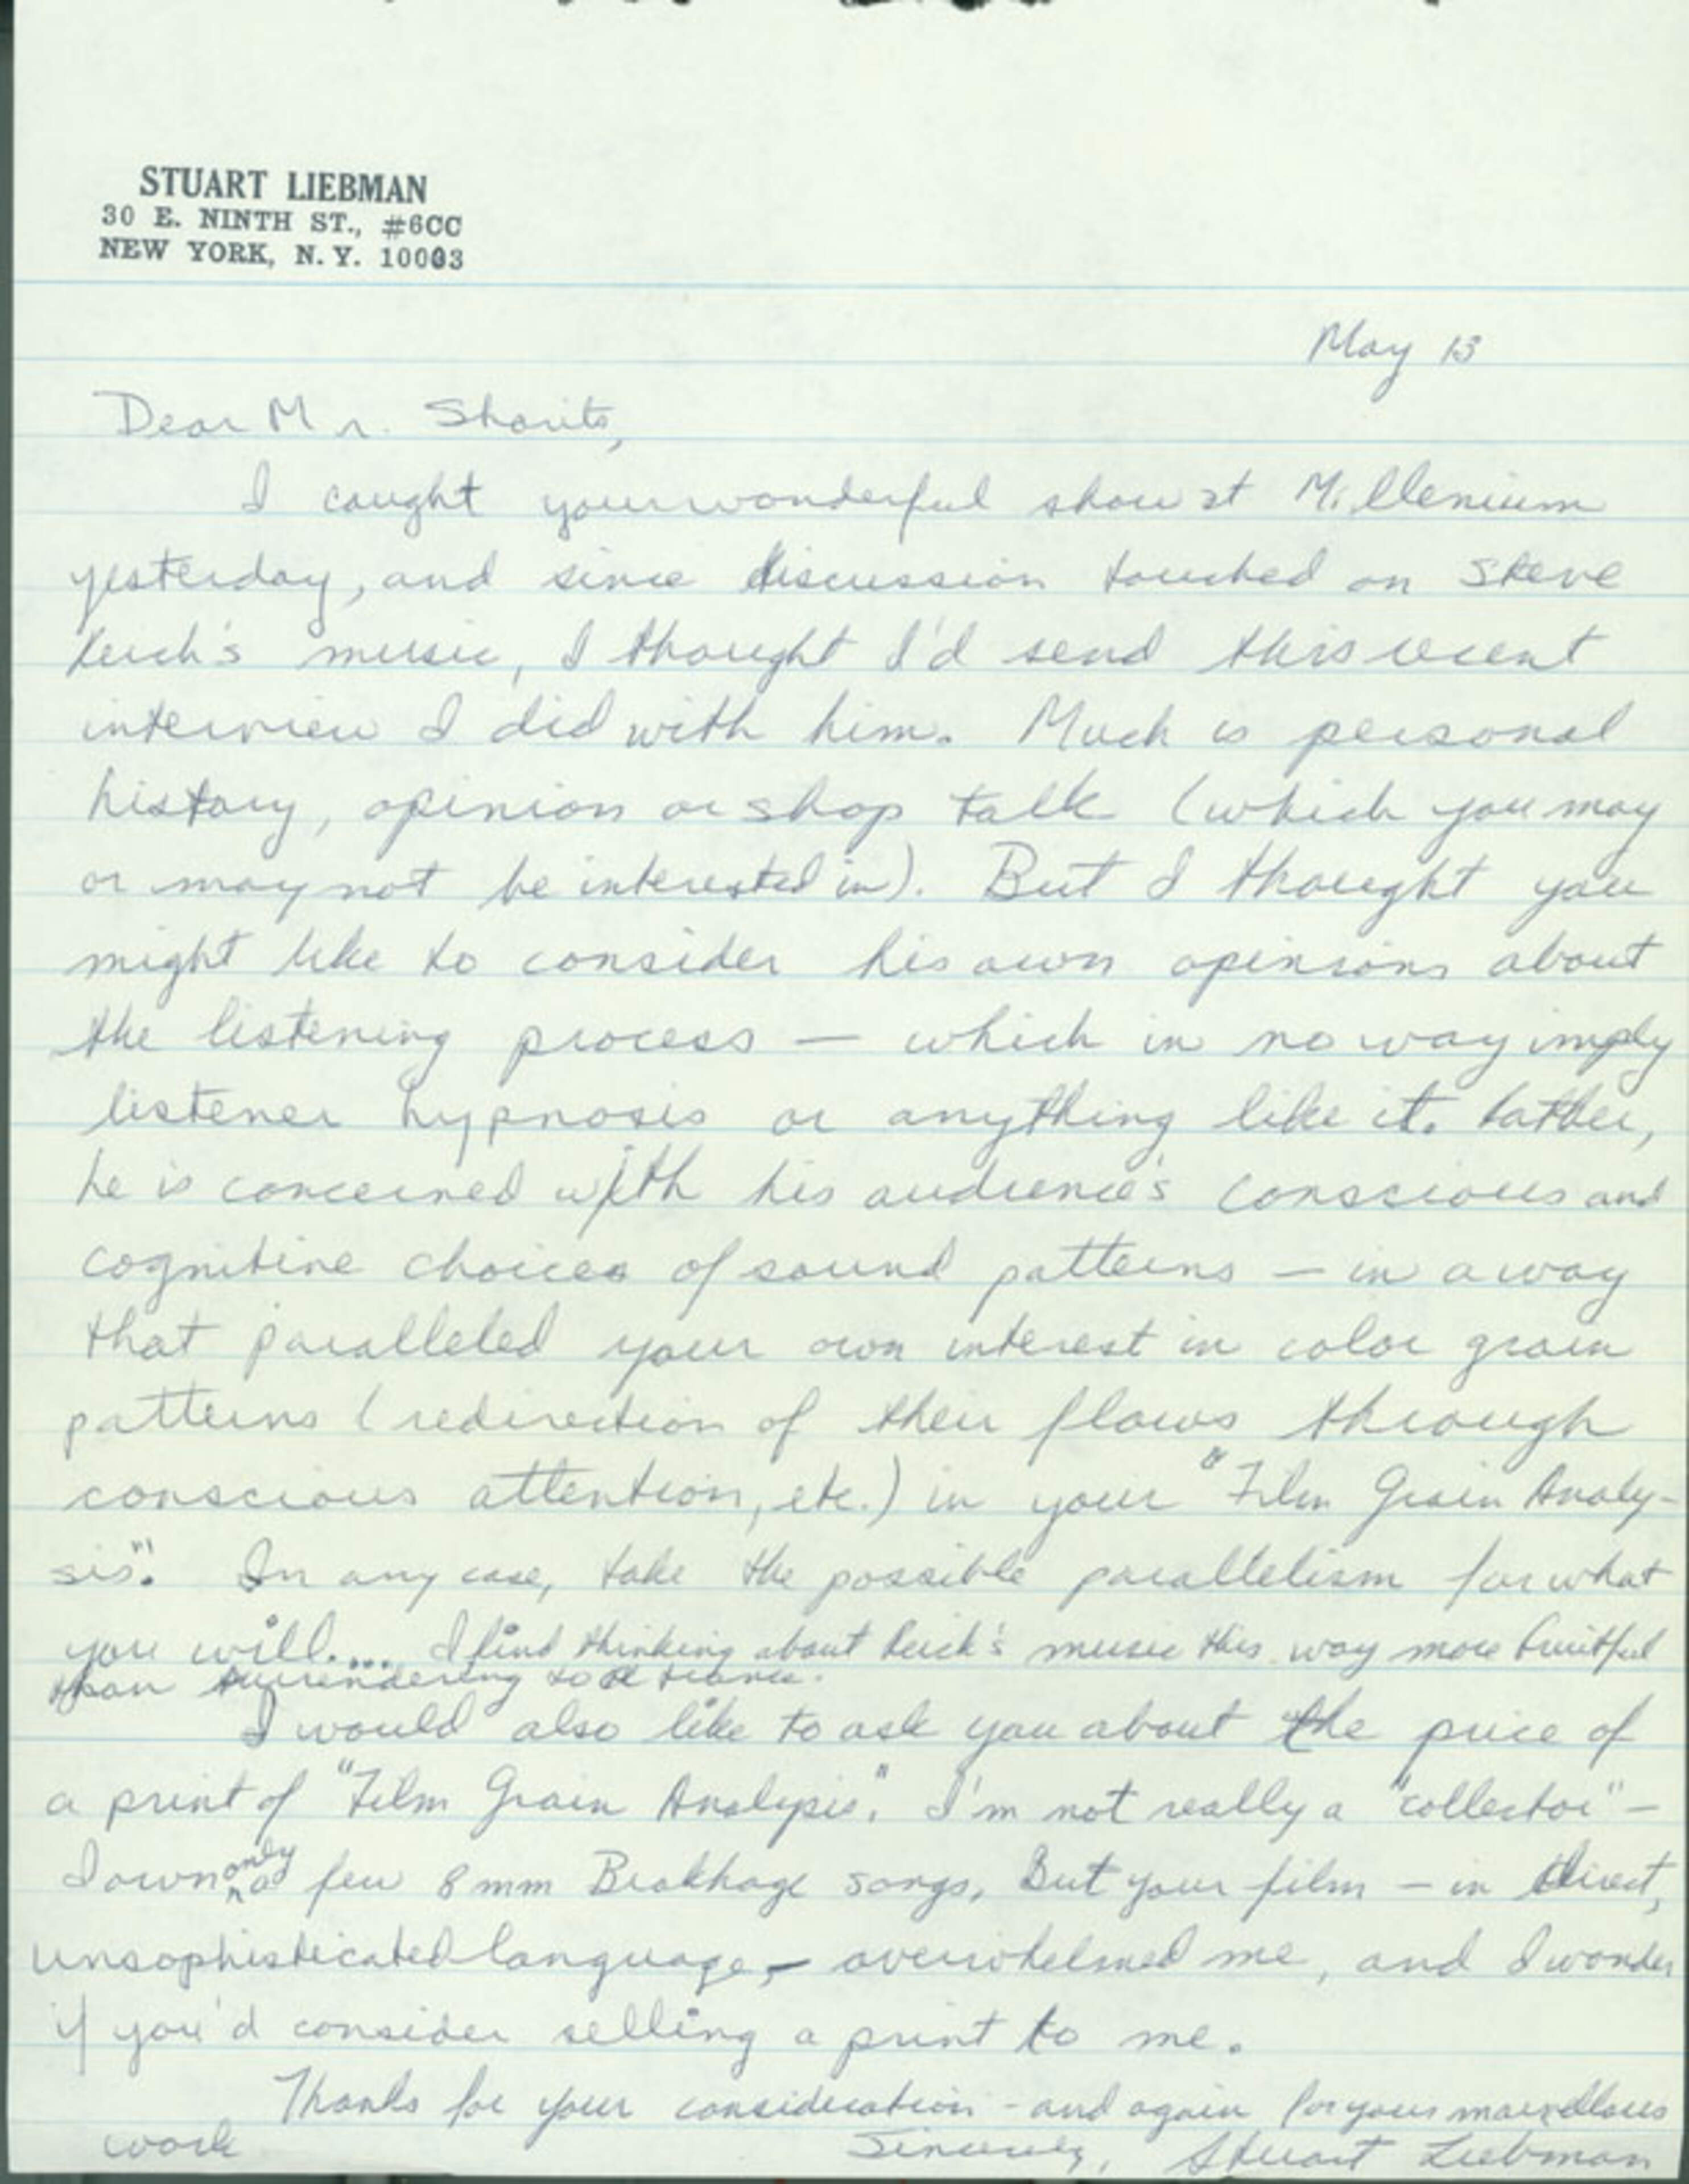 STUART LIEBMAN
30 E. NINTH ST., #6CC
NEW YORK, N. Y. 10003
May 13
Dear Mr. Sharits,
I caught your wonderful show at Millenium
yesterday, and since discussion touched on Steve
Reich's music, I thought I'd send this recent
interview I did with him. Much is personal
history, opinion or shop talk (which you may
or may not be interested in). But I thought you
might like to consider his own opinions about
the listening process — which in no way imply
listener hypnosis or anything like it. Rather,
he is concerned with his audience's conscious and
cognitive choices of sound patterns — in a way
that paralleled your own interest in color grain
patterns (redirection of their flows through
conscious attention, etc.) in your "Film Grain Analy-
sis". In any case, take the possible parallelism for what
you will.... I find thinking about Reich's music this way more fruitful
than surrendering to a trance.
I would also like to ask you about the price of
a print of "Film Grain Analysis." I'm not really a "collector" —
I own only a few 8mm Brakhage songs. But your film — in direct,
unsophisticated language, — overwhelmed me, and I wonder
if you'd consider selling a print to me.
Thanks for your consideration - and again for your marvellous
work
Sincerely, Stuart Liebman